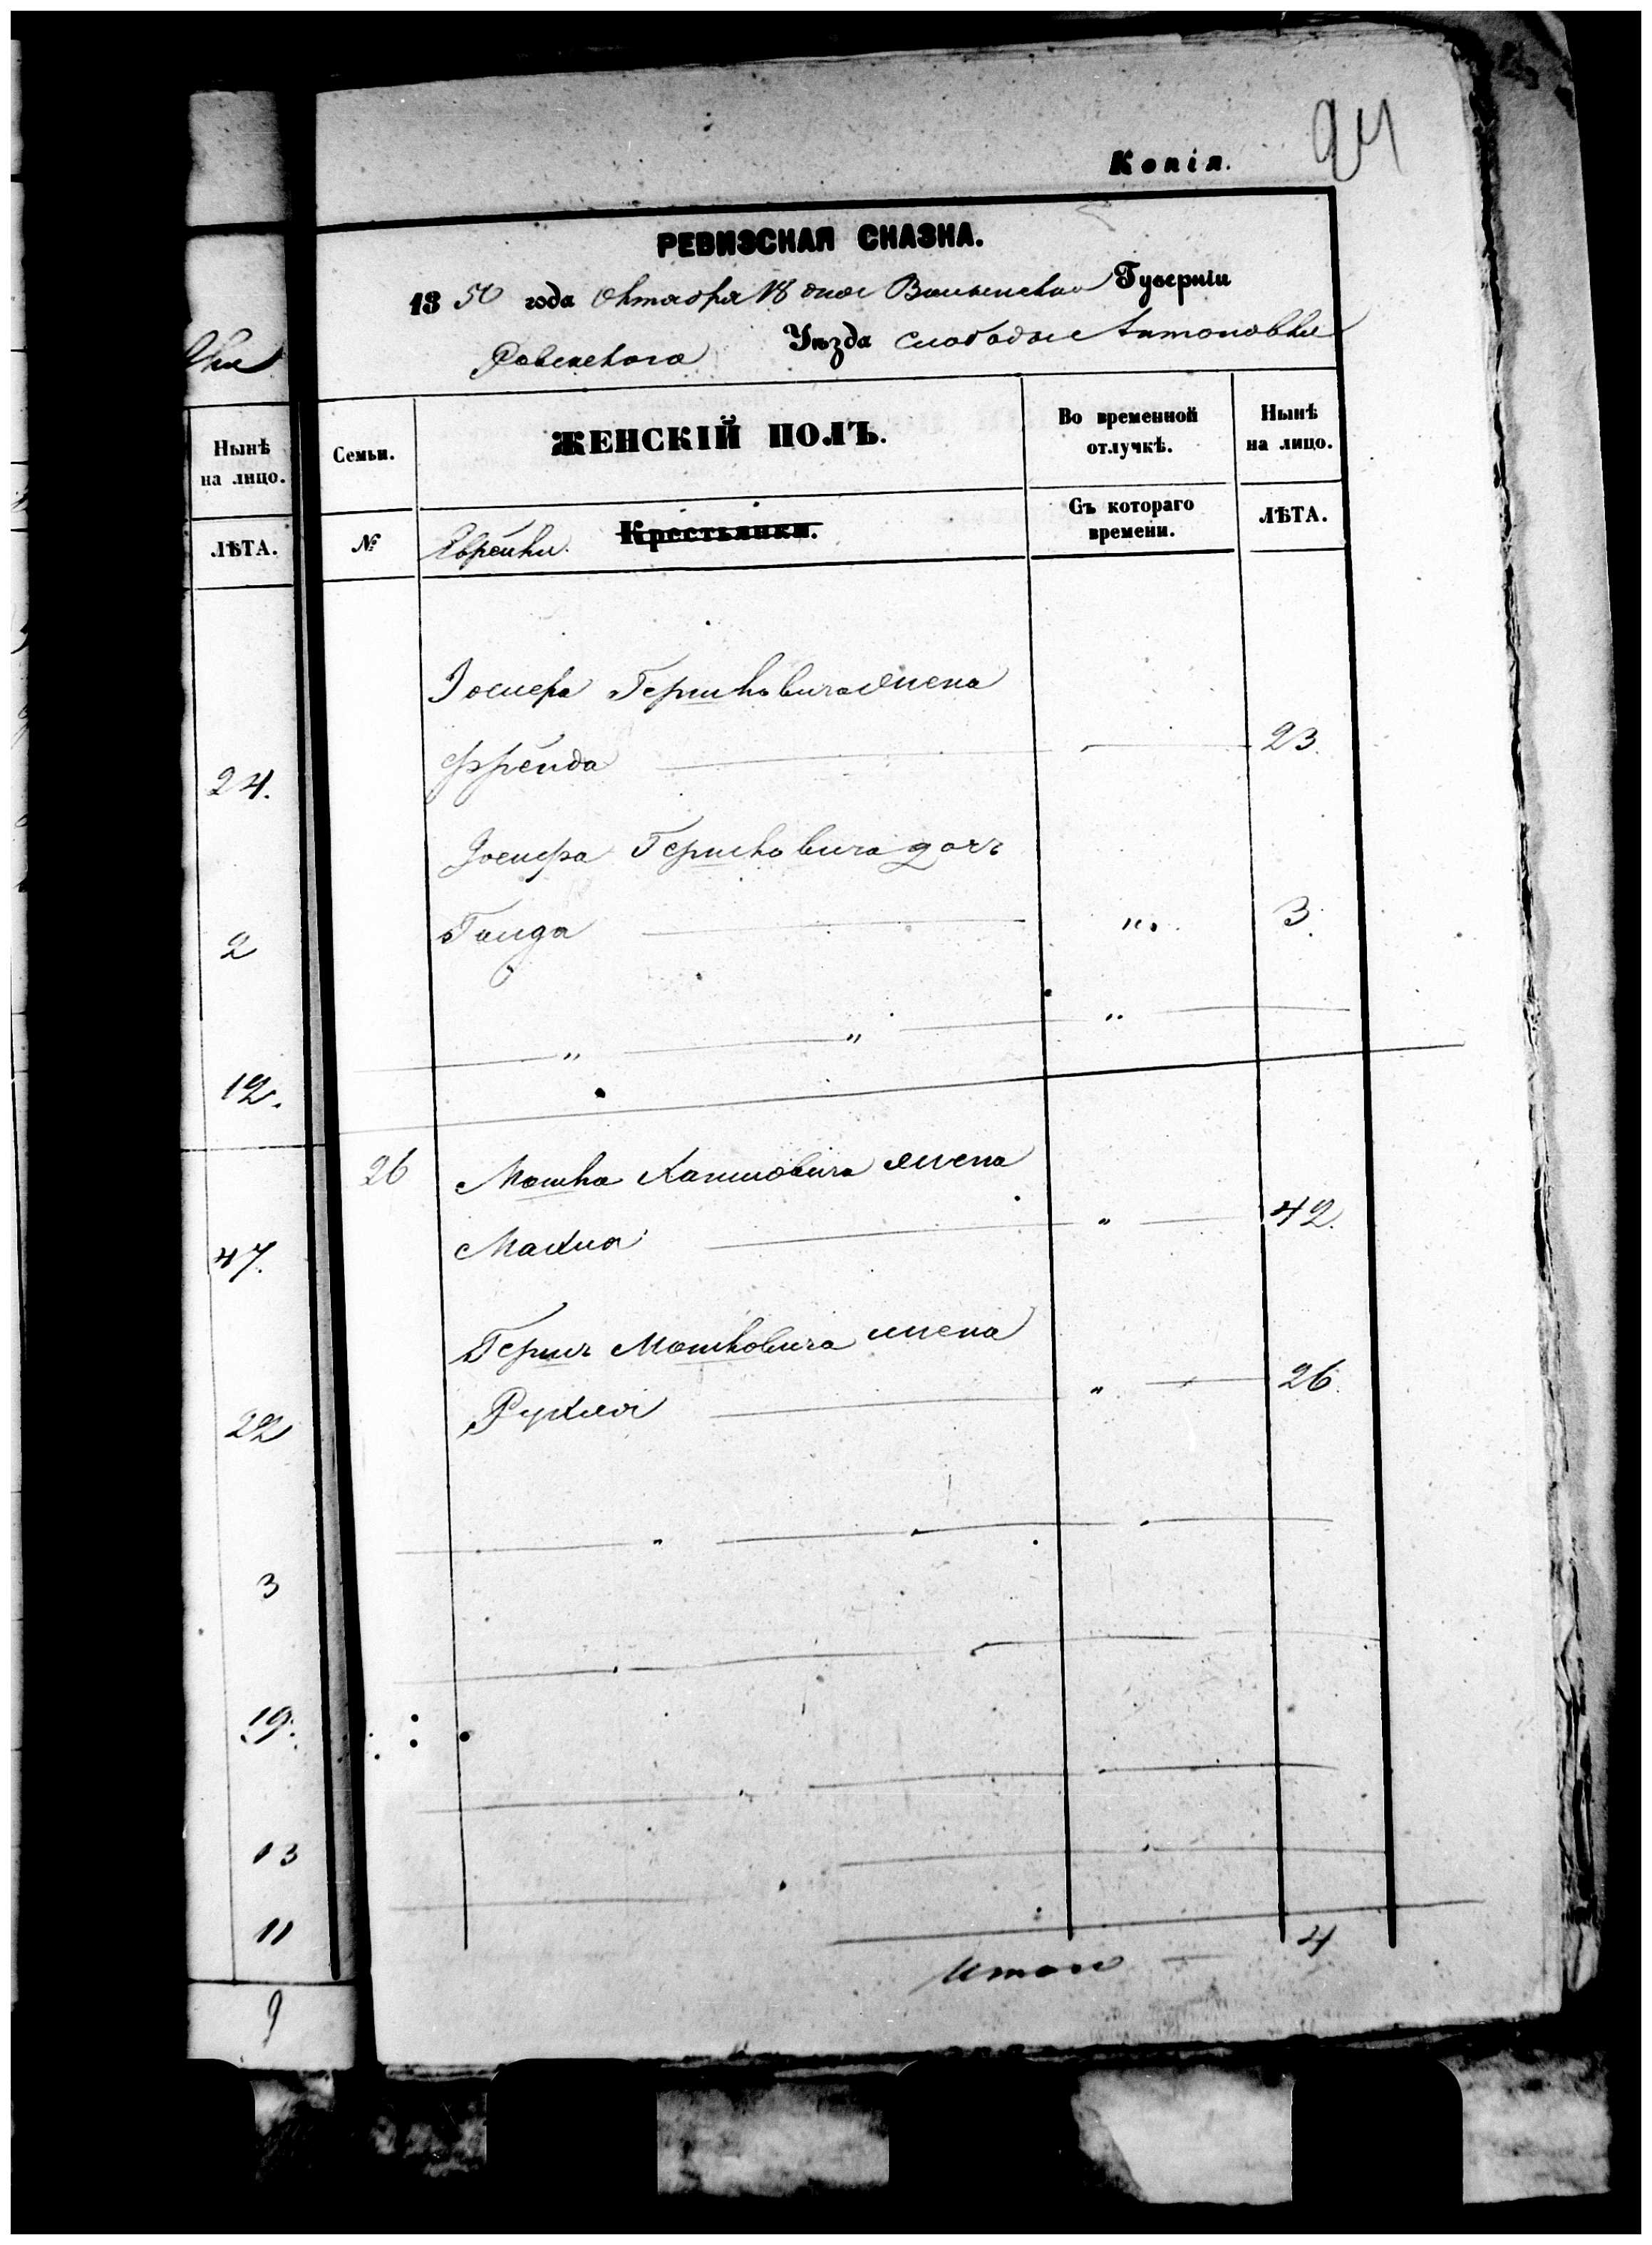 24
Копія.
РЕВИЗСКАЯ СКАЗКА.
1850 года Октября 18 дня Волынской Губерніи
Ровенскаго Уѣзда слободы Антоновки
Нынѣ
на лицо.
ЛѢТА.
24.
2
12.
47.
22
3
19.
13
11
9
Семьи. ЖЕНСКІЙ ПОЛЪ. Во временной отлучкѣ. Нынѣ на лицо.
№ Еврейки. Крестьянки. Съ котораго времени. ЛѢТА.
Іосифа Гершковича жена
Фрейда 23.
Іосифа Гершковича дочь
Голда " 3.
26 Мошка Хаимовича жена
Махля " 42.
Гершъ Мошковича жена
Рухля " 26.
Итого 4